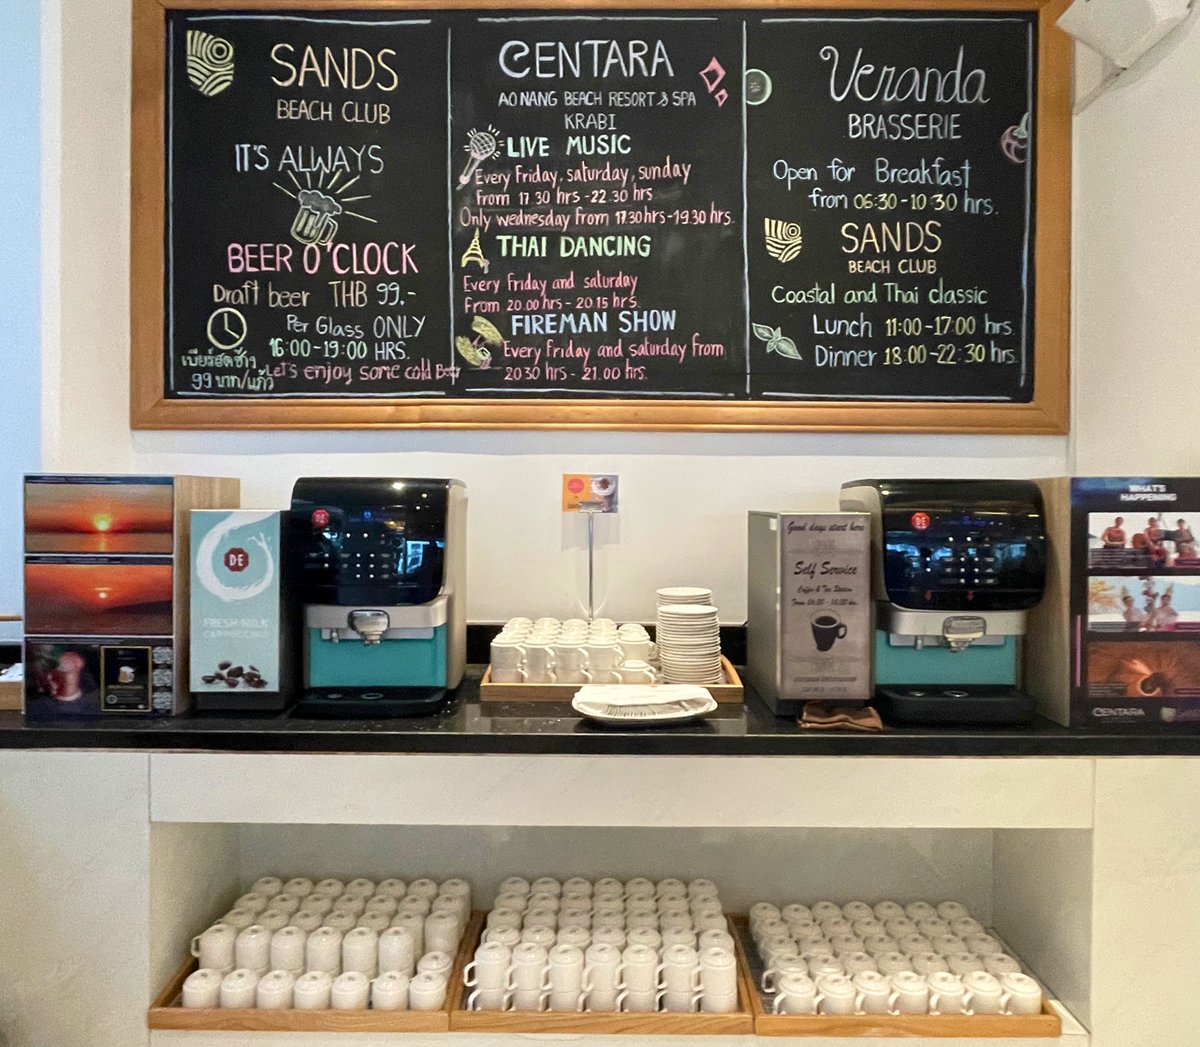 SANDS
BEACH CLUB
IT'S ALWAYS
BEER O'CLOCK
Draft beer THB 99.-
Per Glass ONLY
16:00-19:00 HRS.
เบียร์สดช้าง
99 บาท/แก้ว
Let's enjoy some cold Beer
CENTARA
AO NANG BEACH RESORT & SPA
KRABI
LIVE MUSIC
Every Friday, saturday, sunday
From 17.30 hrs -22.30 hrs.
Only wednesday From 17.30hrs-19.30 hrs.
THAI DANCING
Every Friday and saturday
From 20.00 hrs - 20.15 hrs.
FIREMAN SHOW
Every Friday and saturday From
20.30 hrs - 21.00 hrs.
Veranda
BRASSERIE
Open for Breakfast
from 06:30-10:30 hrs.
SANDS
BEACH CLUB
Coastal and Thai classic
Lunch 11:00-17:00 hrs
Dinner 18:00-22:30 hrs.
D·E
FRESH MILK
CAPPUCCINO
D·E
Good days start here
Self Service
Coffee & Tea Station
From 06:30 - 10:30 hrs.
D·E
WHAT'S
HAPPENING
CENTARA